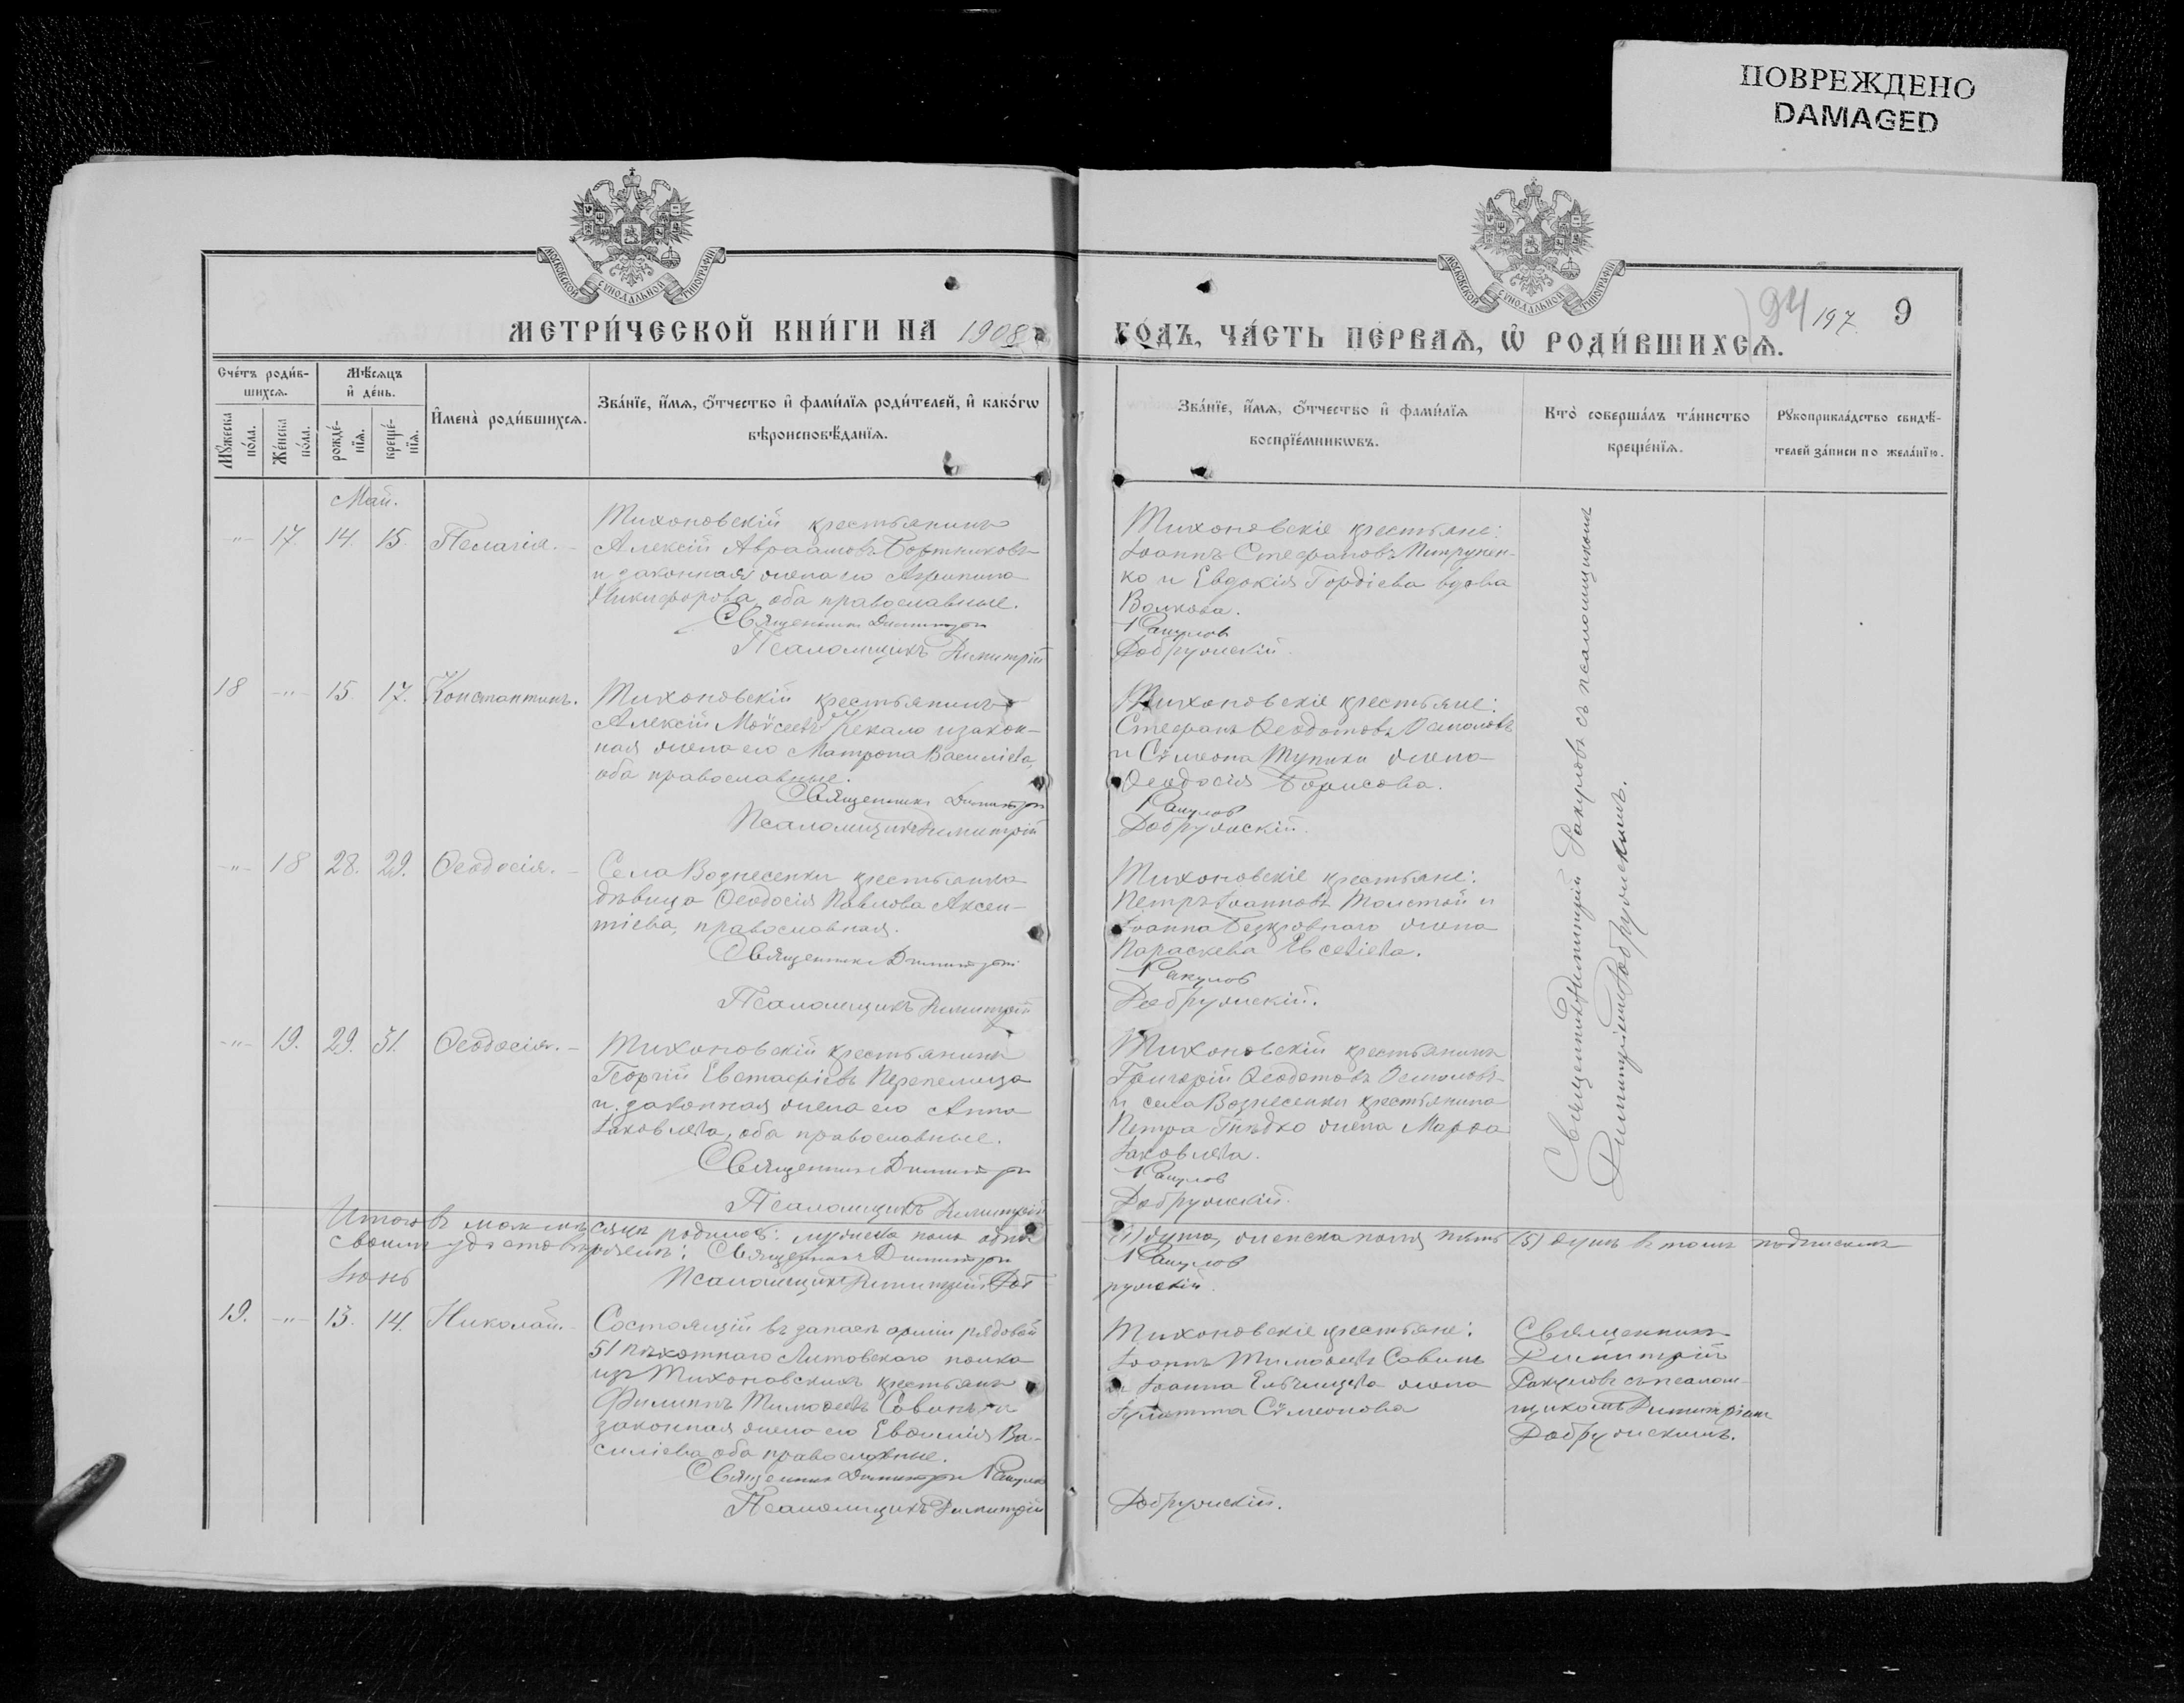 ПОВРЕЖДЕНО
DAMAGED
МОСКОВСКОЙ СѴНОДАЛЬНОЙ ТИПОГРАФІИ
МОСКОВСКОЙ СѴНОДАЛЬНОЙ ТИПОГРАФІИ
94 197 9
МЕТРИ́ЧЕСКОЙ КНИ́ГИ НА 1908 ГО́ДЪ, ЧА́СТЬ ПЕ́РВАЯ, Ѡ҆ РОДИ́ВШИХСѦ.
Сче́тъ роди́в-
шихсѧ.
Мꙋ́жеска по́ла.
Же́нска по́ла.
Мѣ́сѧцъ
и҆ де́нь.
рожде́-
нїѧ.
креще́-
нїѧ.
И҆мена̀ роди́вшихсѧ.
Зва́нїе, и҆́мѧ, ѻ҆́тчество и҆ фами́лїѧ роди́телей, и҆ како́гѡ
вѣроисповѣ́данїѧ.
Зва́нїе, и҆́мѧ, ѻ҆́тчество и҆ фами́лїѧ
воспрїе́мникѡвъ.
Кто̀ соверша́лъ та́инство
креще́нїѧ.
Рꙋкоприкла́дство свидѣ́-
телей за́писи по жела́нїю.
Май.
-"- 17. 14. 15. Пелагія. -
Тихоновскій крестьянинъ
Алексій Авраамовъ Бортниковъ
и законная жена его Агрипина
Никифорова, оба православные.
Священникъ Димитрій
Псаломщикъ Димитрій
Тихоновскіе крестьяне:
Іоаннъ Стефановъ Петрунен-
ко и Евдокія Гордіева вдова
Волкова.
Ракулов
Добружскій.
18 -"- 15. 17. Константинъ.
Тихоновскій крестьянинъ
Алексій Моѵсеевъ Кекало и закон-
ная жена его Матрона Василіева,
оба православные.
Священникъ Димитрій
Псаломщикъ Димитрій
Тихоновскіе крестьяне:
Стефанъ Ѳеодотовъ Осмоловъ
и Сѵмеона Тупики жена
Ѳеодосія Борисова.
Ракулов
Добружскій.
-"- 18 28. 29. Ѳеодосія. -
Села Вознесенки крестьянка
дѣвица Ѳеодосія Павлова Аксен-
тіева, православная.
Священникъ Димитрій
Псаломщикъ Димитрій
Тихоновскіе крестьяне:
Петръ Іоанновъ Толстой и
Іоанна Безкровнаго жена
Параскева Евсевіева.
Ракулов
Добружскій.
-"- 19. 29. 31. Ѳеодосія. -
Тихоновскій крестьянинъ
Георгій Евстафіевъ Перепелица
и законная жена его Анна
Іаковлева, оба православные.
Священникъ Димитрій
Псаломщикъ Димитрій
Тихоновскій крестьянинъ
Григорій Ѳеодотовъ Осмоловъ
и села Вознесенки крестьянина
Петра Гнѣдко жена Марѳа
Іаковлева.
Ракулов
Добружскій.
Священникъ Димитрій Ракуловъ съ псаломщикомъ
Димитріемъ Добружскимъ.
Итого въ маѣ мѣсяцѣ родилось: мужеска пола одна (1) душа, женска пола пять (5) душъ въ томъ подписомъ
своимъ удостовѣряемъ: Священникъ Димитрій Ракулов
Псаломщикъ Димитрій Доб-
ружскій.
Іюнь
19. -"- 13. 14. Николай. -
Состоящій въ запасѣ арміи рядовой
51 пѣхотнаго Литовскаго полка
изъ Тихоновскихъ крестьянъ
Филиппъ Тимоѳеевъ Савинъ и
законная жена его Евѳимія Ва-
силіева, оба православные.
Священникъ Димитрій Ракулов
Псаломщикъ Димитрій
Тихоновскіе крестьяне:
Іоаннъ Тимоѳеевъ Савинъ
и Іоанна жена
Іулитта Сѵмеонова
Добружскій.
Священникъ
Димитрій
Ракуловъ съ псалом-
щикомъ Димитріемъ
Добружскимъ.